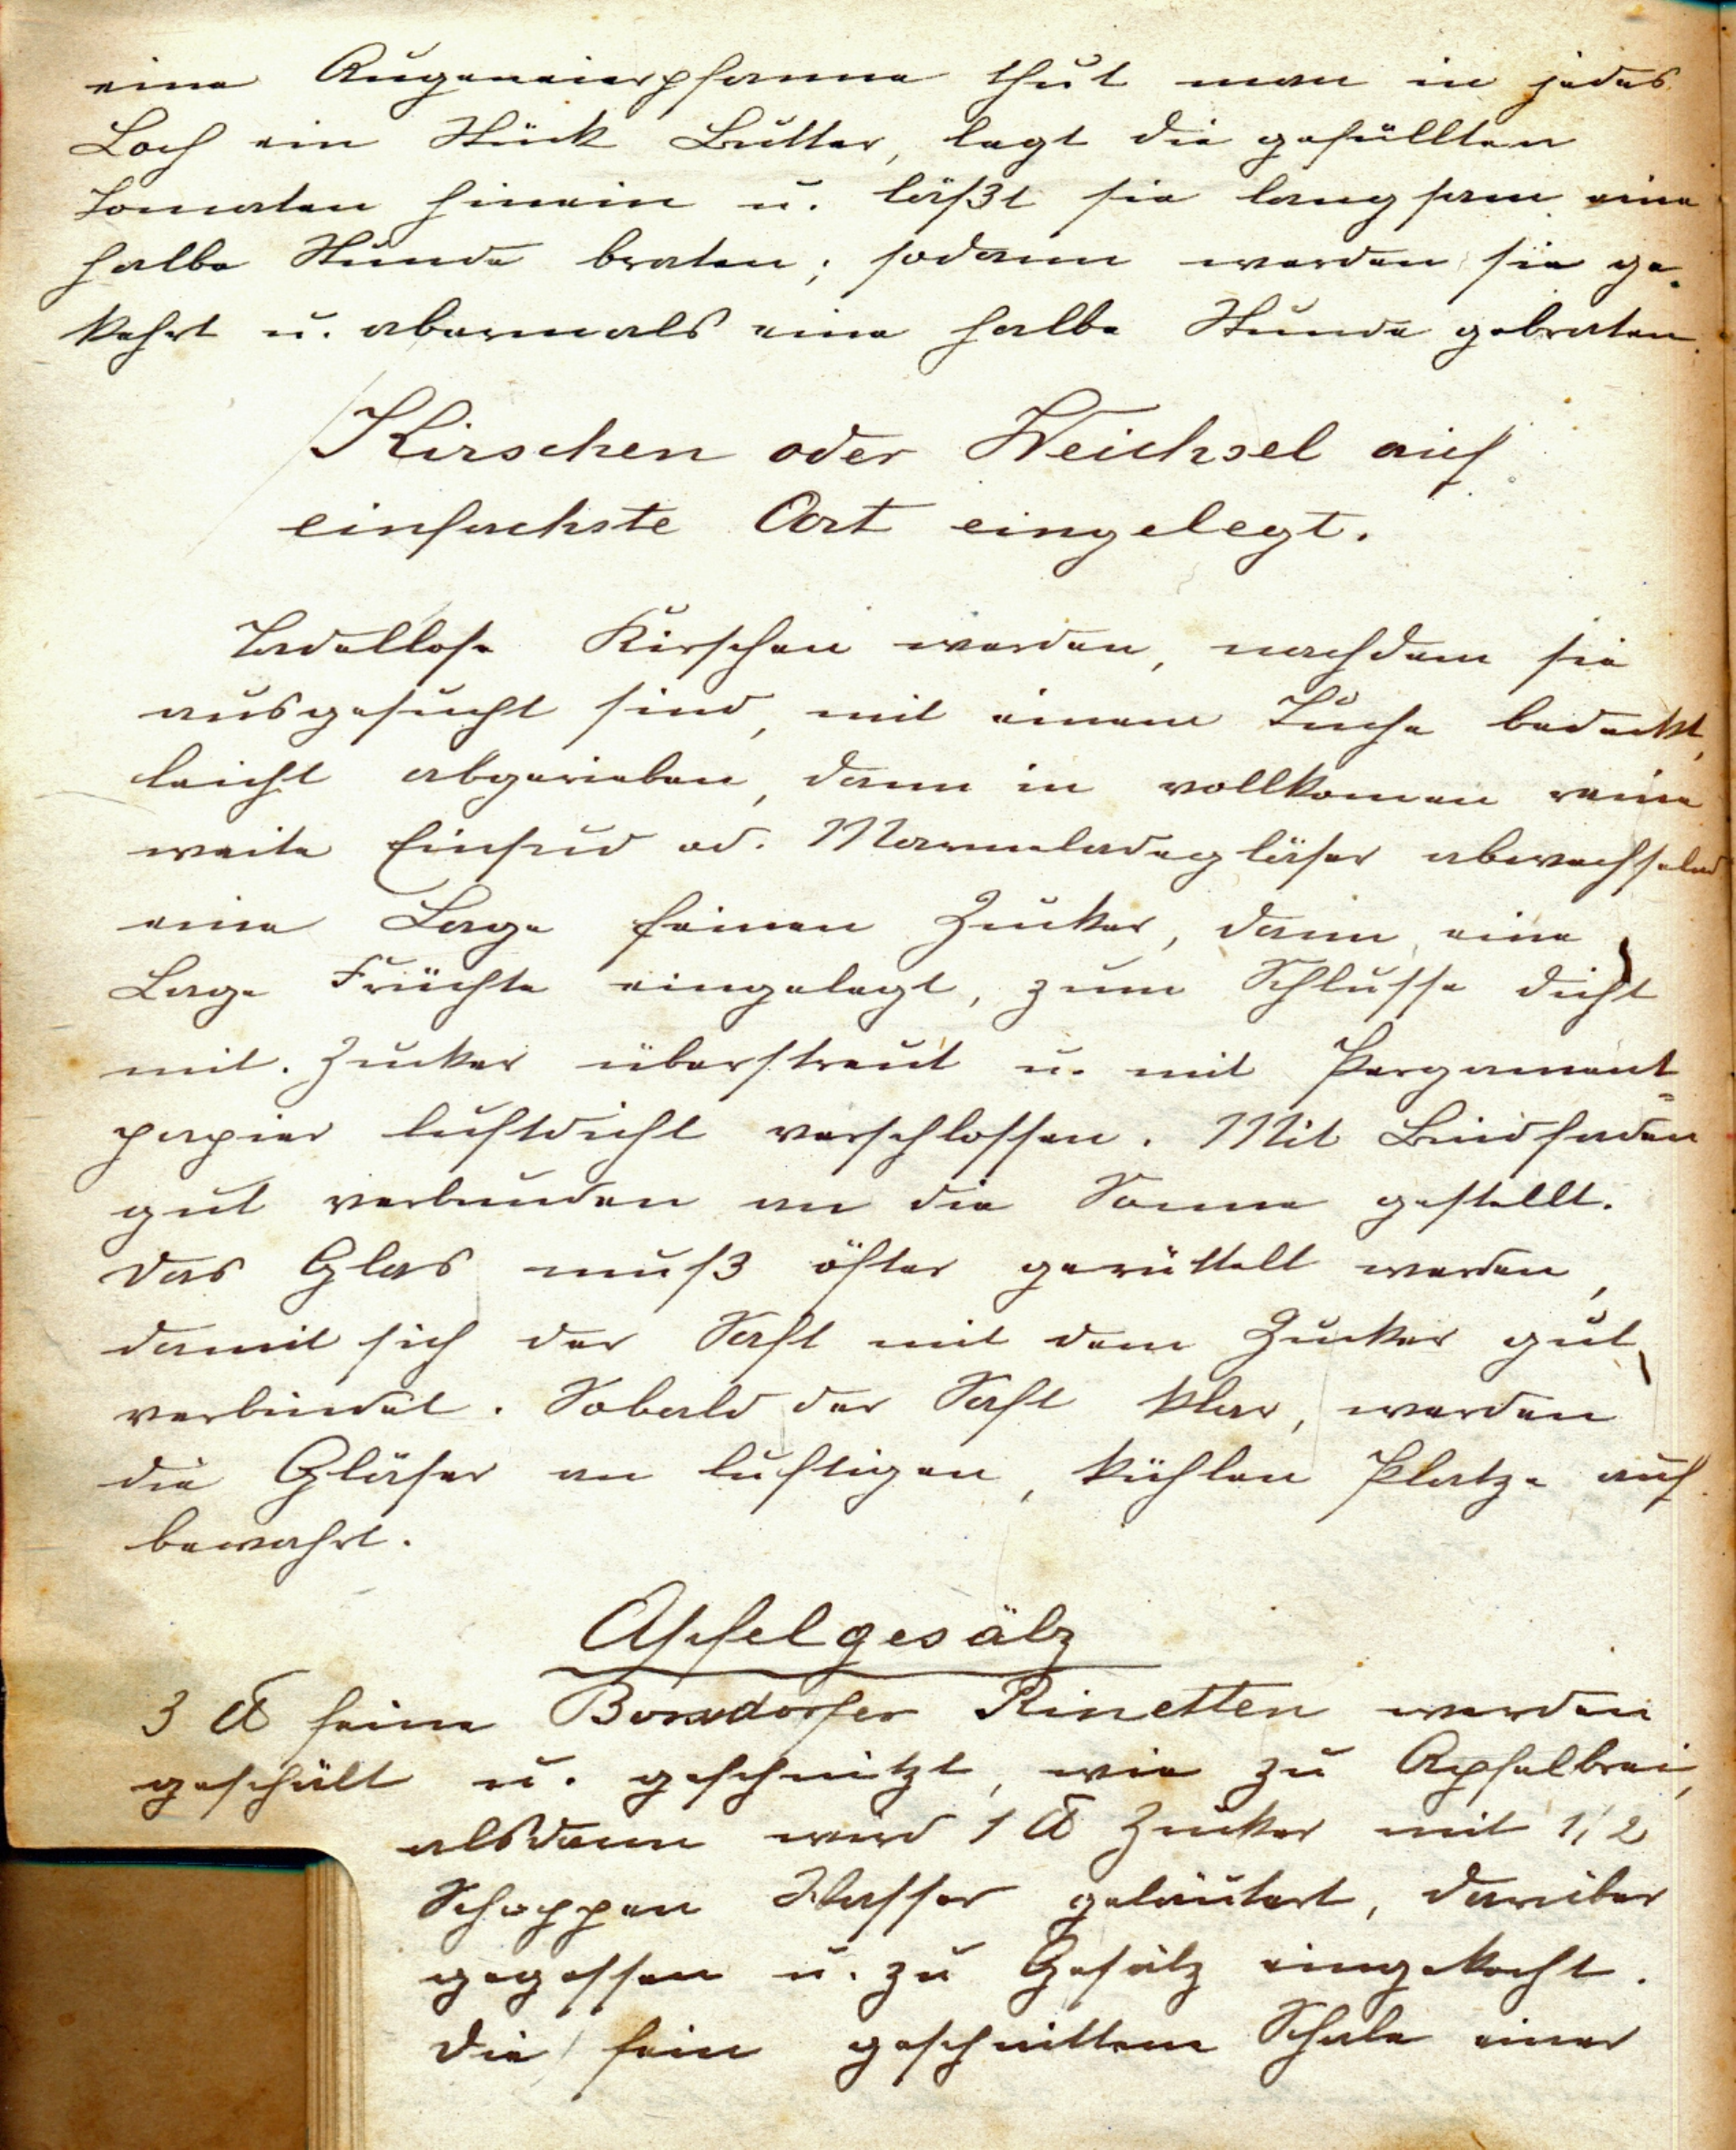 eine Augeneierpfanne thut man in jedes
Loch ein Stück Butter, legt die gefüllten
Tomaten hinein u. läßt sie langsam eine
halbe Stunde braten; sodann werden sie ge-
kehrt u. abermals eine halbe Stunde gebraten.
Kirschen oder Weichsel auf
einfachste Art eingelegt.
Tadellose Kirschen werden, nachdem sie
ausgesucht sind, mit einem Tuche bedeckt,
leicht abgerieben, dann in vollkomen reine
weite Einsud od. Marmeladegläser abwechselnd
eine Lage feinen Zucker, dann eine
Lage Früchte eingelegt, zum Schlusse dicht
mit Zucker überstreut u. mit Pergament=
papier luftdicht verschlossen. Mit Bindfaden
gut verbunden an die Sonne gestellt.
Das Glas muß öfter gerüttelt werden,
damit sich der Saft mit dem Zucker gut
verbindet. Sobald der Saft klar, werden
die Gläser an luftigen, kühlen Platze auf
bewahrt.
Apfelgesälz
3 ℔ feine Borsdorfer Rinetten werden
geschält u. geschnitzt, wie zu Apfelbrei,
alsdann wird 1 ℔ Zucker mit 1/2
Schoppen Wasser geläutert, darüber
gegossen u. zu Gesälz eingekocht.
Die fein geschnittene Schale einer